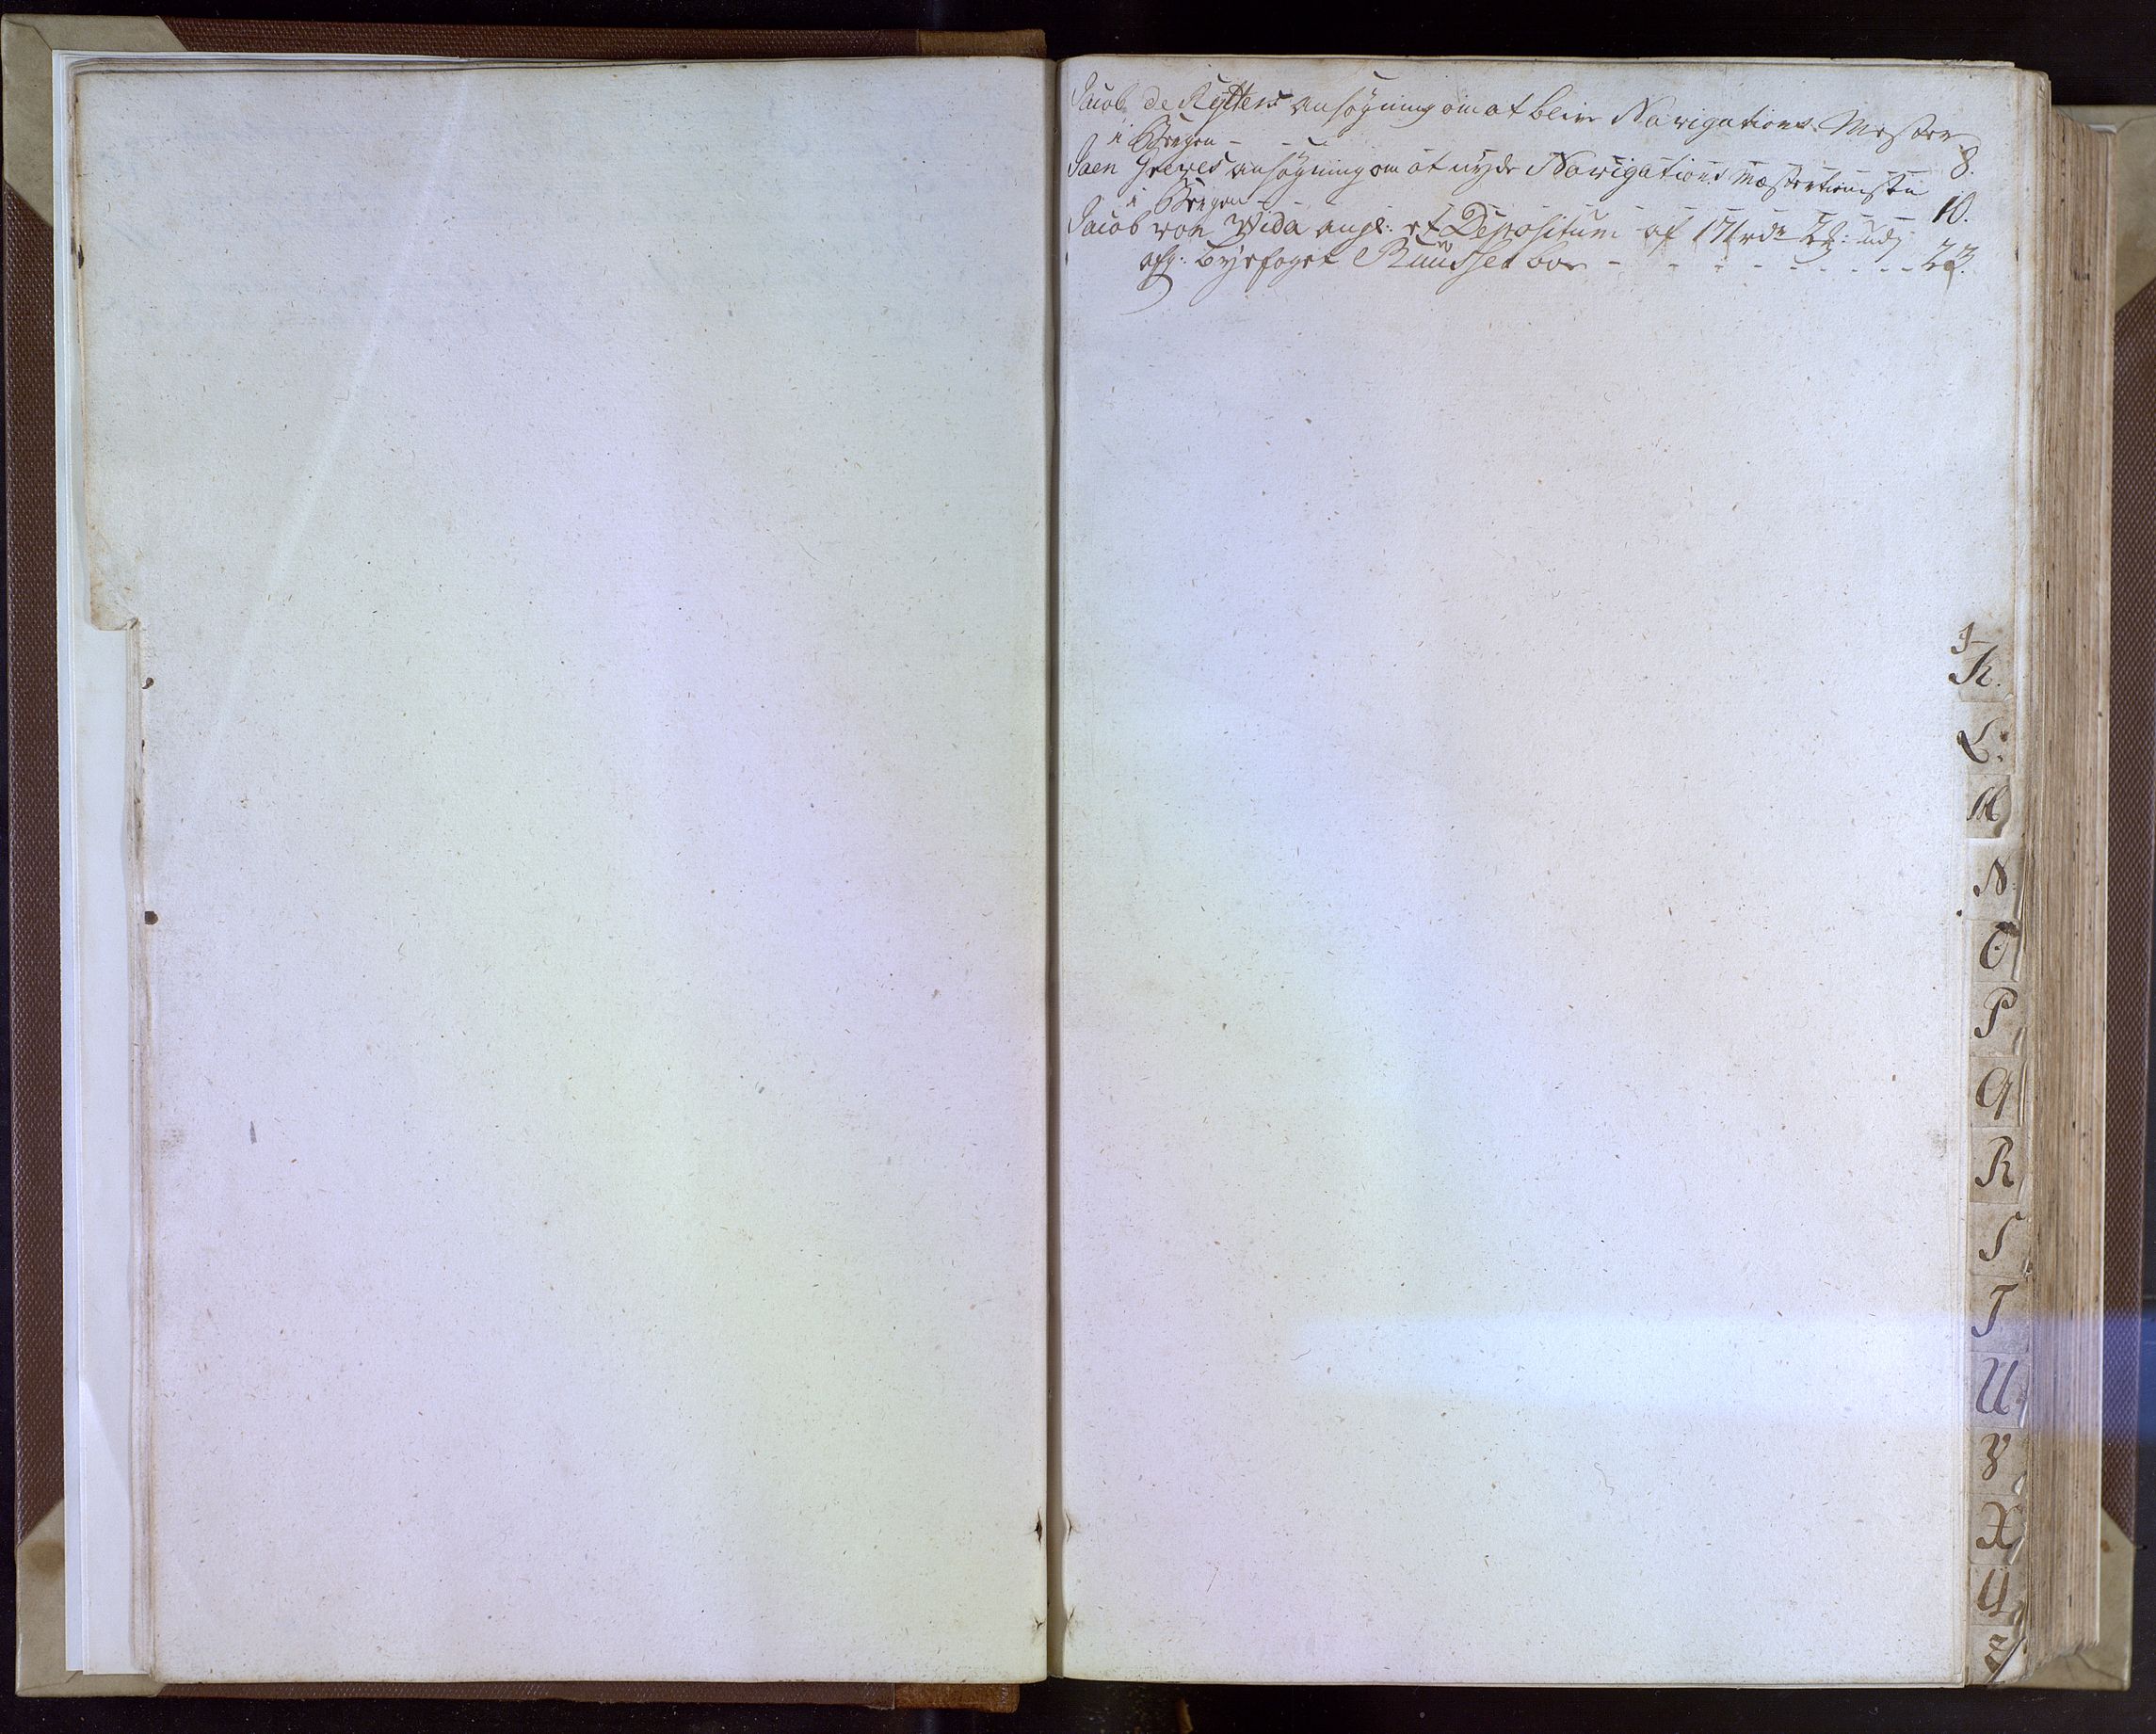 Jacob de Rÿtters ansøgning om at blive Navigations Mester
i Bergen - - - 8.
Jaen Greves ansøgning om at nyde Navigations Mester
i Bergen - - - 10.
Jacob von Wida ang: et Depositum af 171 rdr
afg: byefoget - - - 23.
J
K.
L.
M
N
O
P
Q
R
S
T
U
V
X
Y
Z